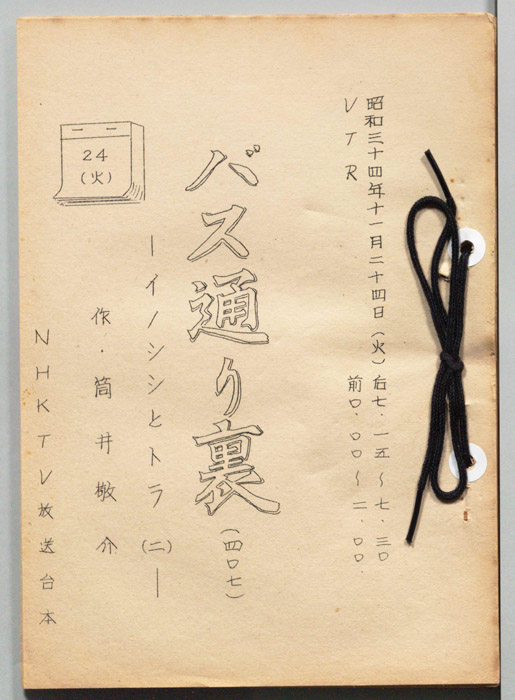 昭和三十四年十一月二十四日(火)后七.一五~七.三〇
VTR 前〇.〇〇~二.〇〇
バス通り裏(四〇七)
―イノシシとトラ(二)―
作・筒井敬介
24
(火)
NHKTV放送台本